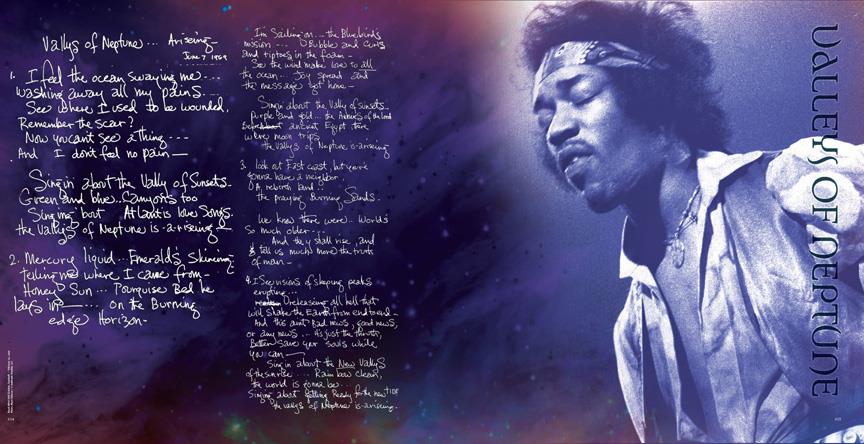 Vallys of Neptune... Ariseing
June 7 1969
1. I feel the ocean swaying me....
washing away all my pains...
See where I used to be wounded,
Remember the scar?
Now you can't see a thing---
And I dont feel no pain—
Singin about the Vally of Sunsets-
Green and blue.. Canyons too
Sing me 'bout Atlantis love Songs.
the Vallys of Neptune is-ariseing
2. Mercury liquid... Emeralds Skineing
telling me where I came from-
Honey Sun... Pourquise Bed he
lays in —— on the Burning
edge Horizon-
I'm Sailing on... the Bluebirds
mission.... Bubbles and Curls
and tiptoes in the foam-
See the wind make love to all
the ocean... Joy spread and
the message got home-
Singin about the Vally of sunsets.
purple and gold... the of the Lord
ancient Egypt, there
were moon trips
the Vallys of Neptune is-ariseing
3. look out East coast, but you're
gonna have a neighbor.
A rebirth land..
the praying Burning Sands.
We know there were.. Worlds
So much older...
And they shall rise, and
tell us much more the truth
of man-
4. I See visions of sleeping peaks
erupting...
releasing all hell that
will Shake the Earth from end to end-
And this aint Bad news, good news,
or any news... it's just the thruth,
Better Save your souls while
you can—
Sing in about the New Vallys
of the sunrise.... Rainbow clean,
the world is gonna be...
Singing about getting Ready for the new tide
the vallys of Neptune is-ariseing.
VALLEYS OF NEPTUNE